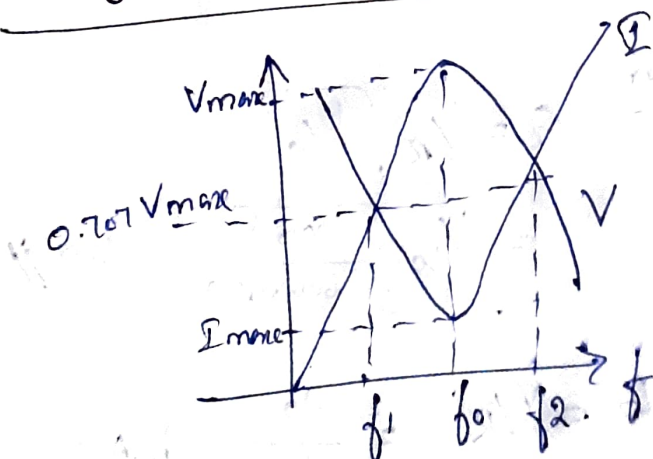 I
Vmax
0.707 Vmax
V
Imax
f1 f0 f2. f